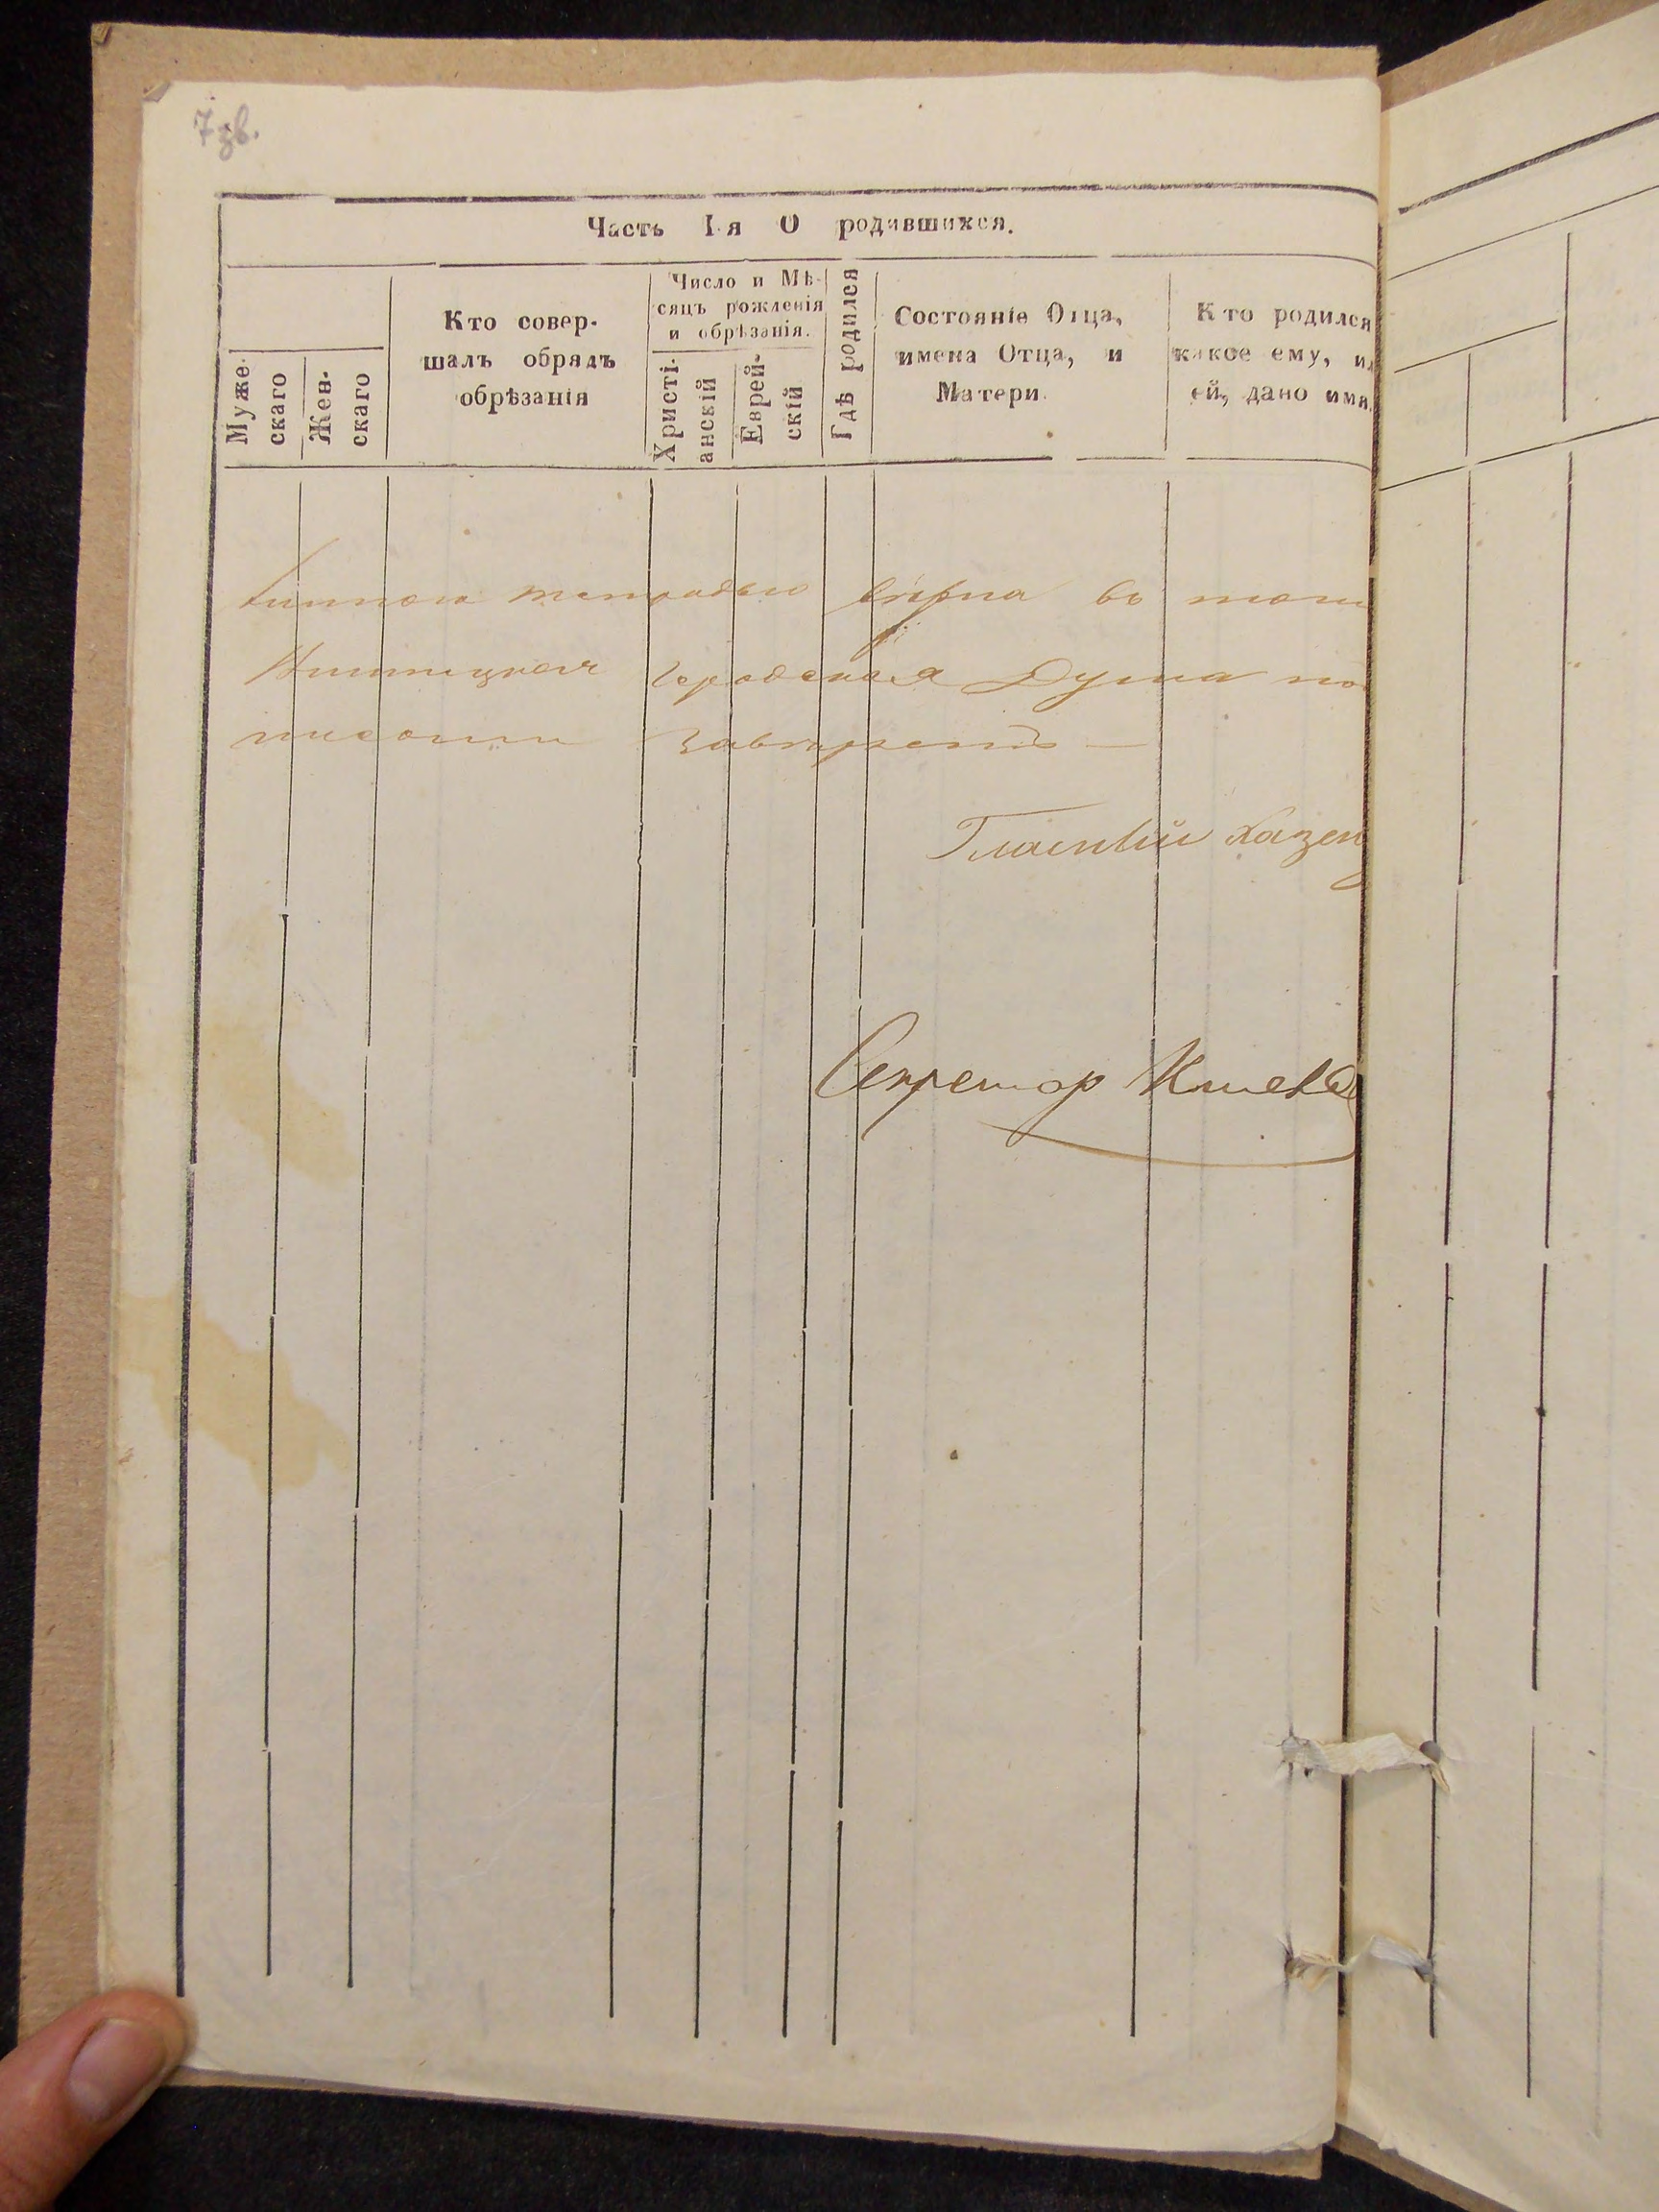 7 зв.
Часть I-я О родившихся.
Муже-
скаго
Жен-
скаго
Кто совер-
шалъ обрядъ
обрѣзанія
Число и Мѣ-
сяцъ рожденія
и обрѣзанія.
Христі-
анскій
Еврей-
скій
Гдѣ родился
Состояніе Отца,
имена Отца, и
Матери.
Кто родился
какое ему, ил
ей, дано имя.
тетрадью вѣрна въ том
Городская Дума по
писомъ
Гласный
Секретар